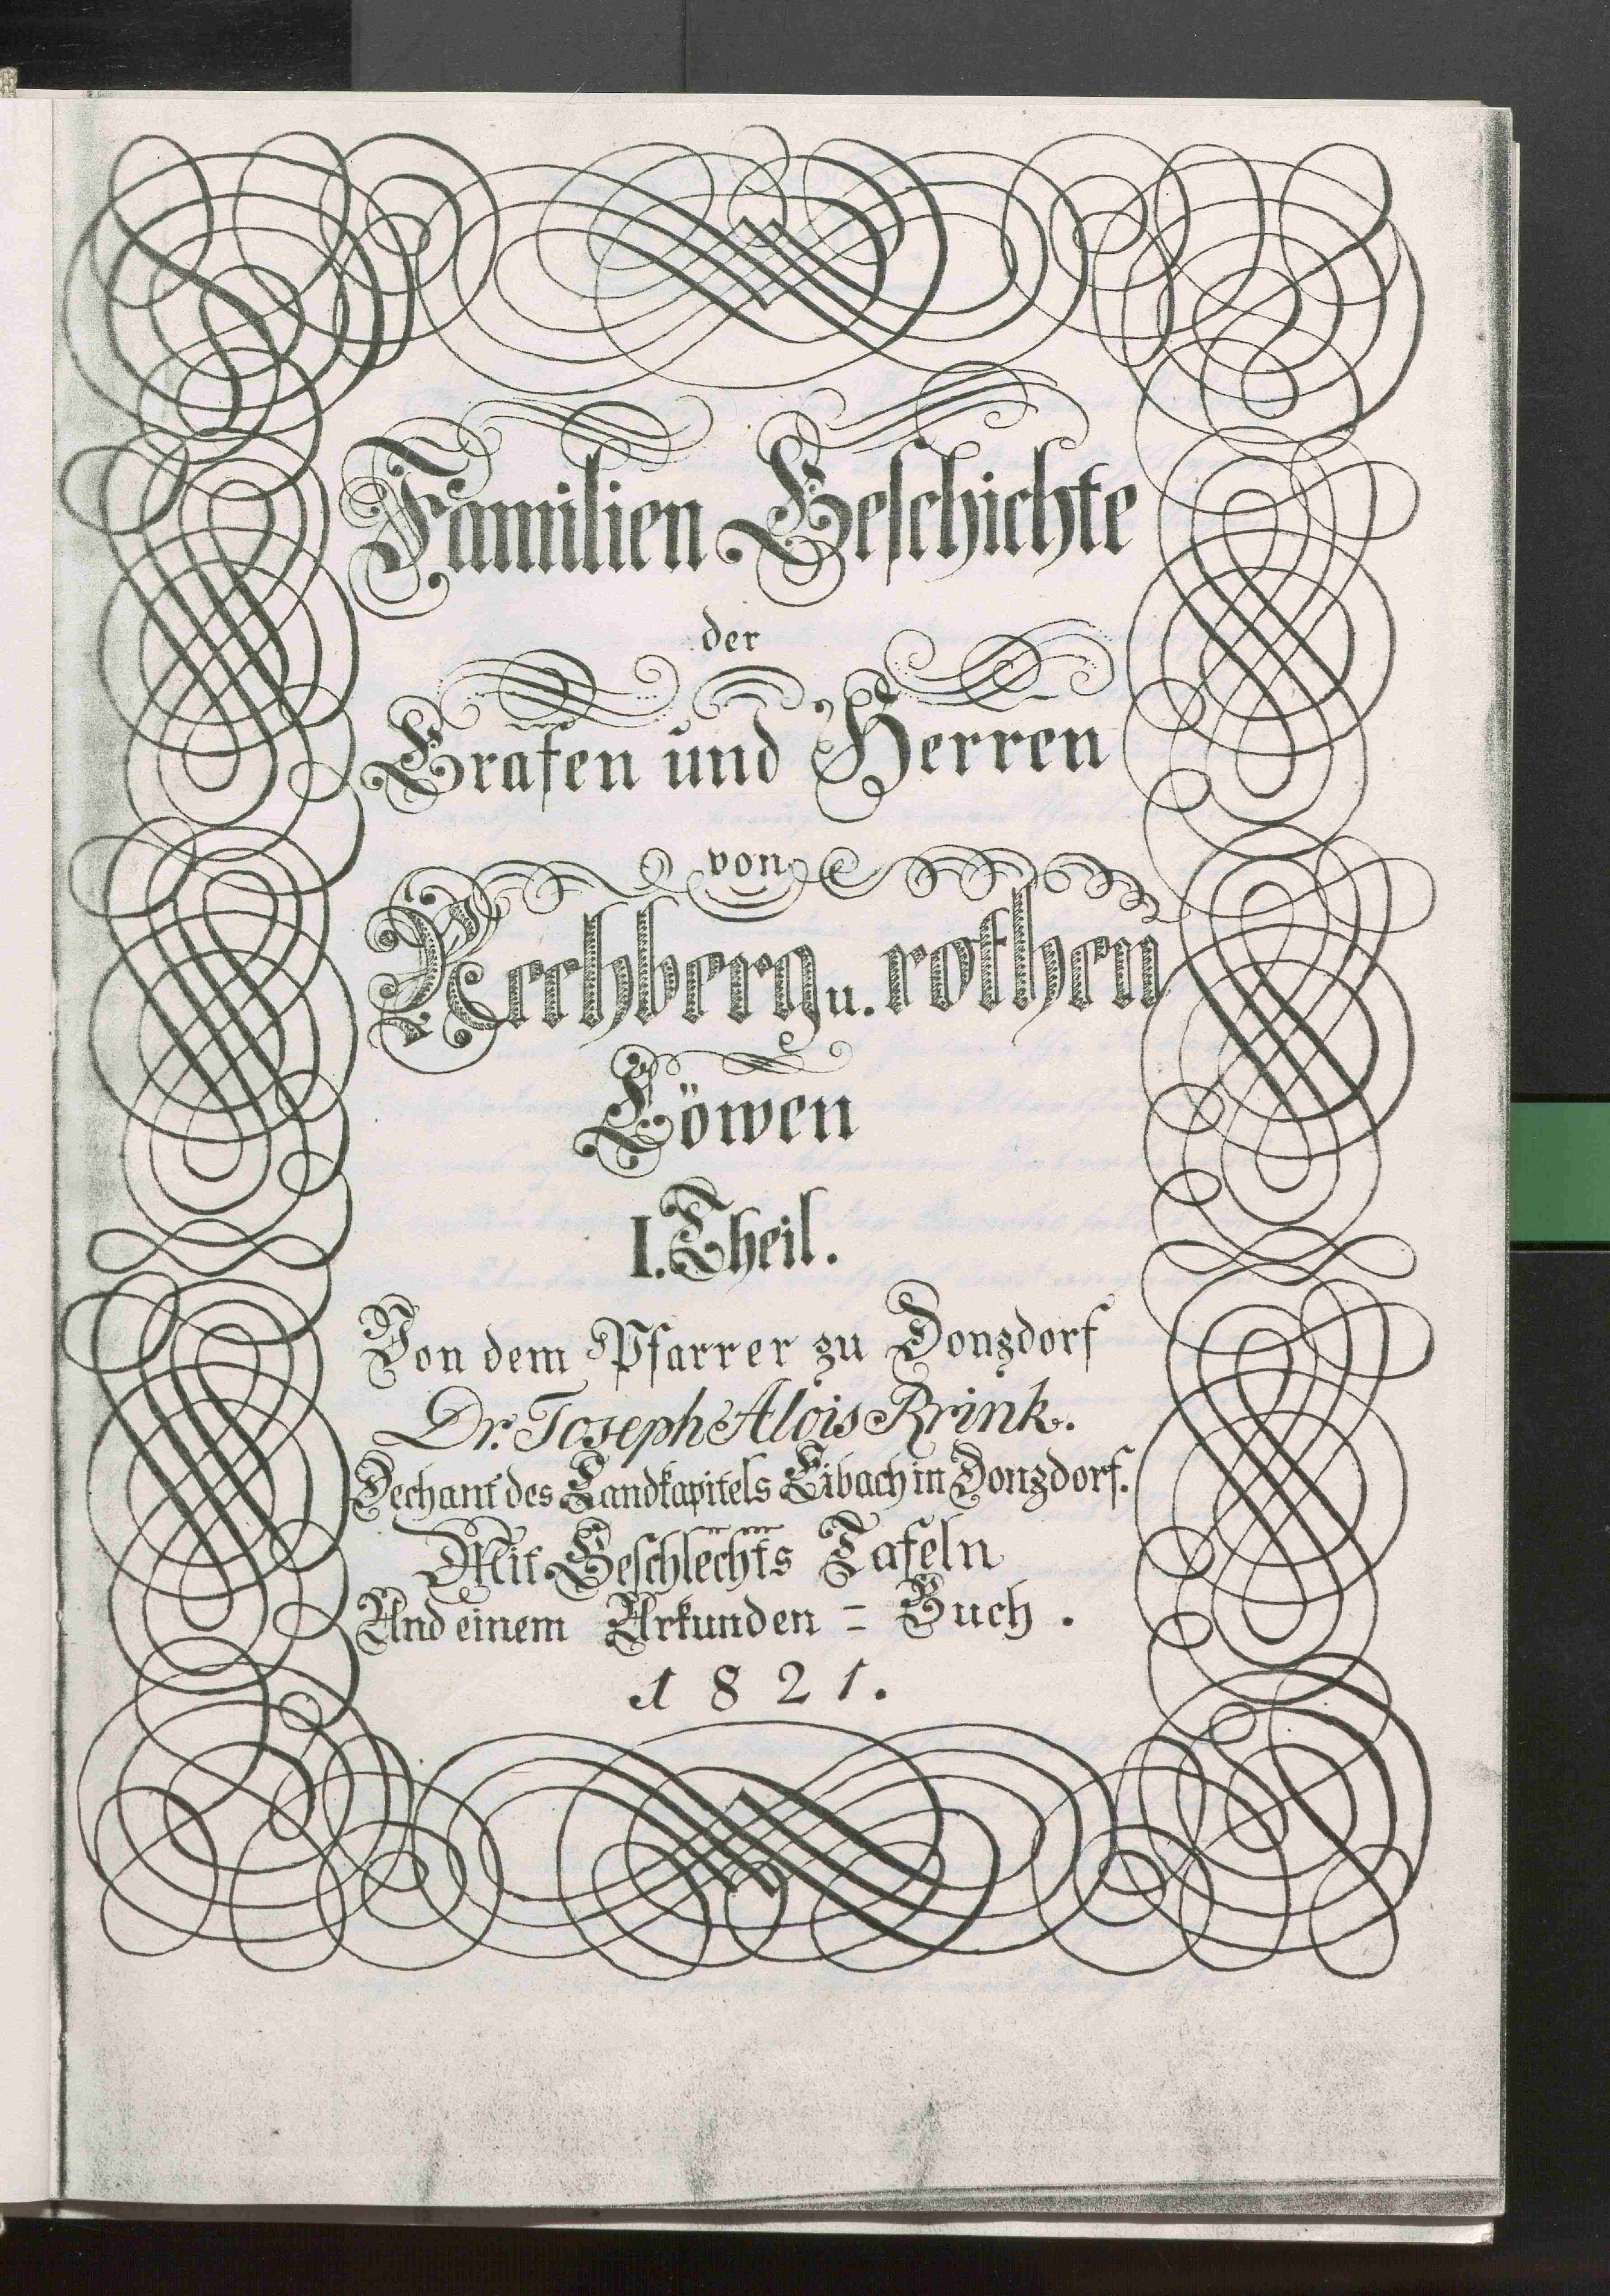 Familien Geschichte
der
Grafen und Herren
von
Rechberg u. rothen
Löwen
I. Theil.
Von dem Pfarrer zu Donzdorf
Dr. Joseph Alois Rrink.
Dechant des Landkapitels Eibach in Donzdorf.
Mit Geschlechts Tafeln
Und einem Urkunden = Buch.
1821.